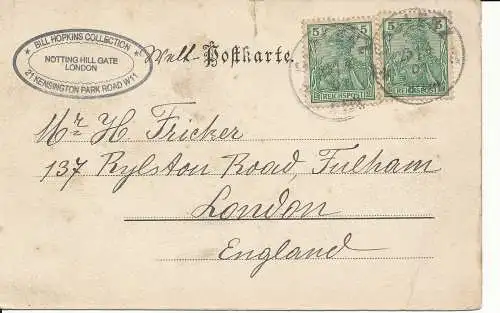 ★ BILL HOPKINS COLLECTION ★
NOTTING HILL GATE
LONDON
21 KENSINGTON PARK ROAD W11
Welt-Postkarte.
5 5
REICHSPOST
5 5
REICHSPOST
Mr H Fricker
137 Rylston Road, Fulham
London
England